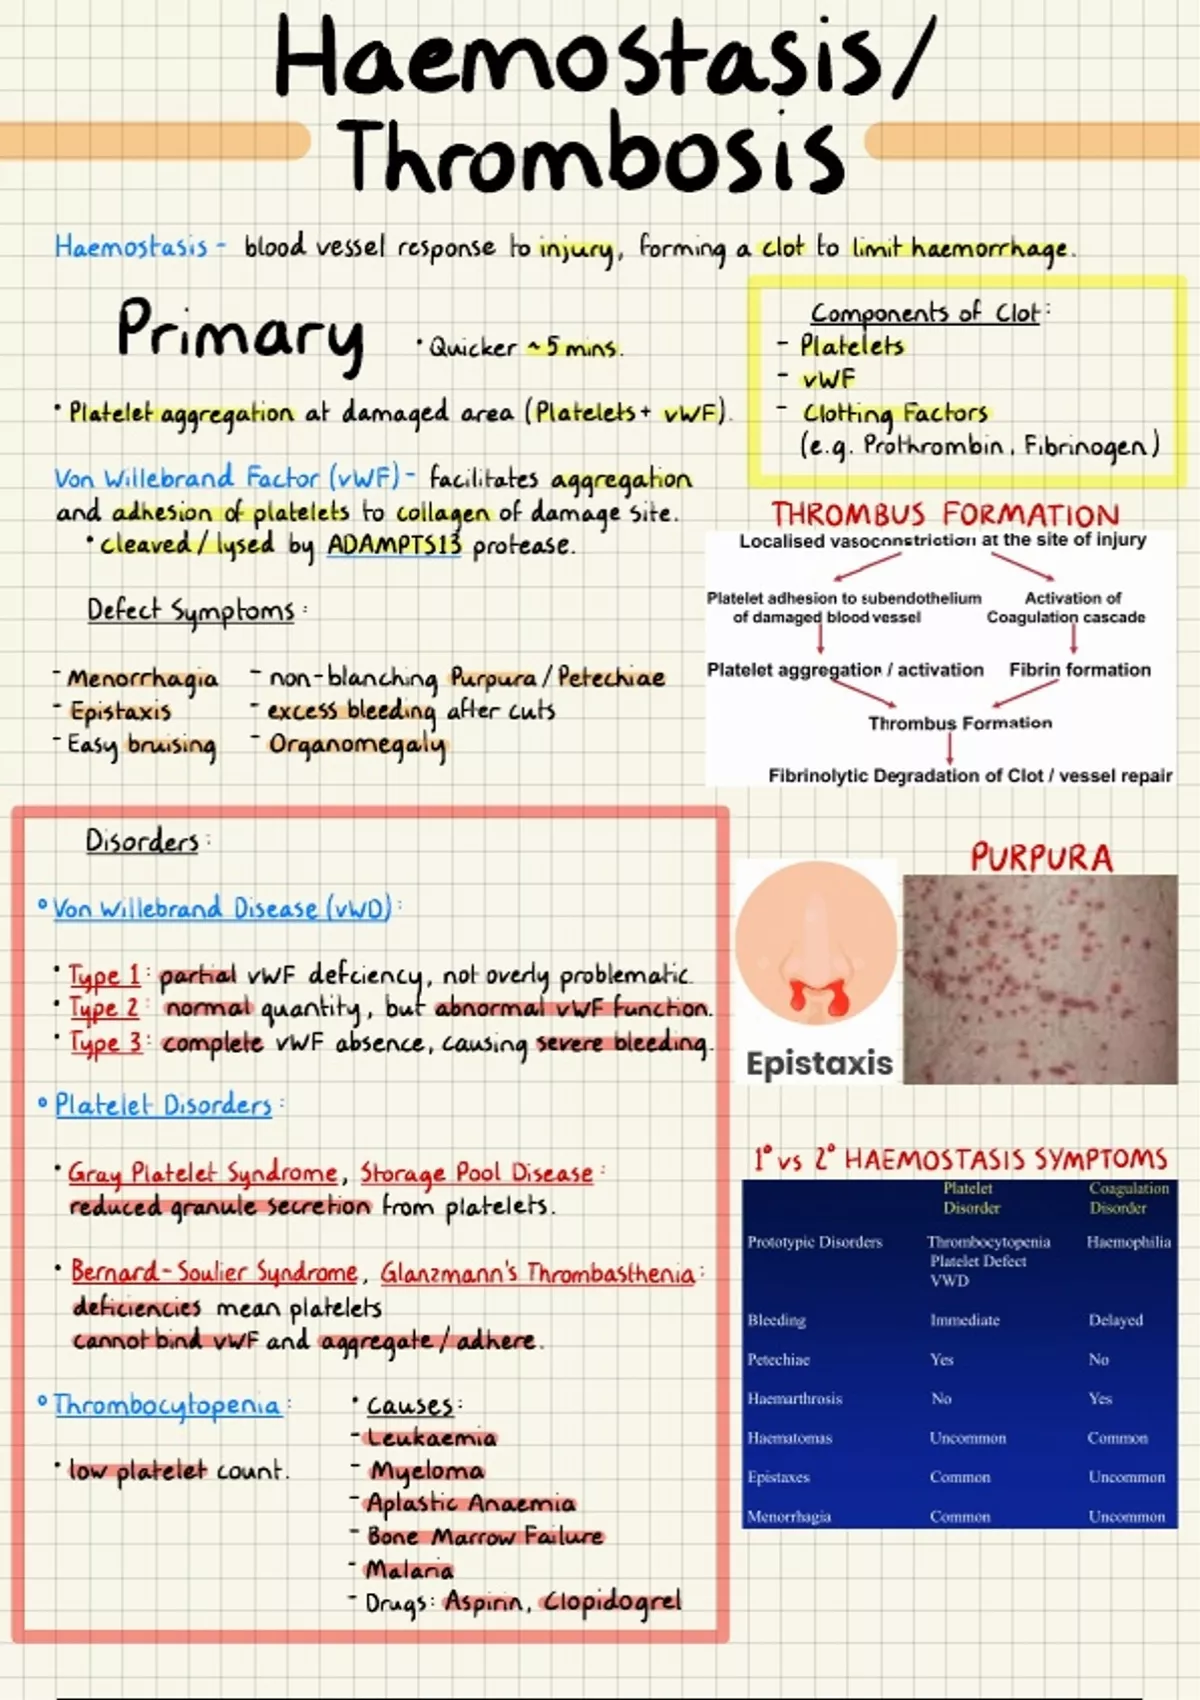 Haemostasis/
Thrombosis
Haemostasis - blood vessel response to injury, forming a clot to limit haemorrhage.
Primary
• Quicker ~5 mins.
• Platelet aggregation at damaged area (Platelets + vWF).
Von Willebrand Factor (vWF) - facilitates aggregation
and adhesion of platelets to collagen of damage site.
• cleaved / lysed by ADAMPTS13 protease.
Components of Clot:
- Platelets
- vWF
- Clotting Factors
(e.g. Prothrombin, Fibrinogen)
Defect Symptoms:
- Menorrhagia
- Epistaxis
- Easy bruising
- non-blanching Purpura / Petechiae
- excess bleeding after cuts
- Organomegaly
THROMBUS FORMATION
Localised vasoconstriction at the site of injury
Platelet adhesion to subendothelium
of damaged blood vessel
Activation of
Coagulation cascade
Platelet aggregation / activation
Fibrin formation
Thrombus Formation
Fibrinolytic Degradation of Clot / vessel repair
Disorders:
° Von Willebrand Disease (vWD):
• Type 1: partial vWF defciency, not overly problematic.
• Type 2: normal quantity, but abnormal vWF function.
• Type 3: complete vWF absence, causing severe bleeding.
° Platelet Disorders:
• Gray Platelet Syndrome, Storage Pool Disease:
reduced granule secretion from platelets.
• Bernard-Soulier Syndrome, Glanzmann's Thrombasthenia:
deficiencies mean platelets
cannot bind vWF and aggregate / adhere.
° Thrombocytopenia:
• low platelet count.
• Causes:
- Leukaemia
- Myeloma
- Aplastic Anaemia
- Bone Marrow Failure
- Malaria
- Drugs: Aspirin, Clopidogrel
PURPURA
Epistaxis
1° vs 2° HAEMOSTASIS SYMPTOMS
Platelet Disorder Coagulation Disorder
Prototypic Disorders Thrombocytopenia Haemophilia
Platelet Defect
VWD
Bleeding Immediate Delayed
Petechiae Yes No
Haemarthrosis No Yes
Haematomas Uncommon Common
Epistaxes Common Uncommon
Menorrhagia Common Uncommon